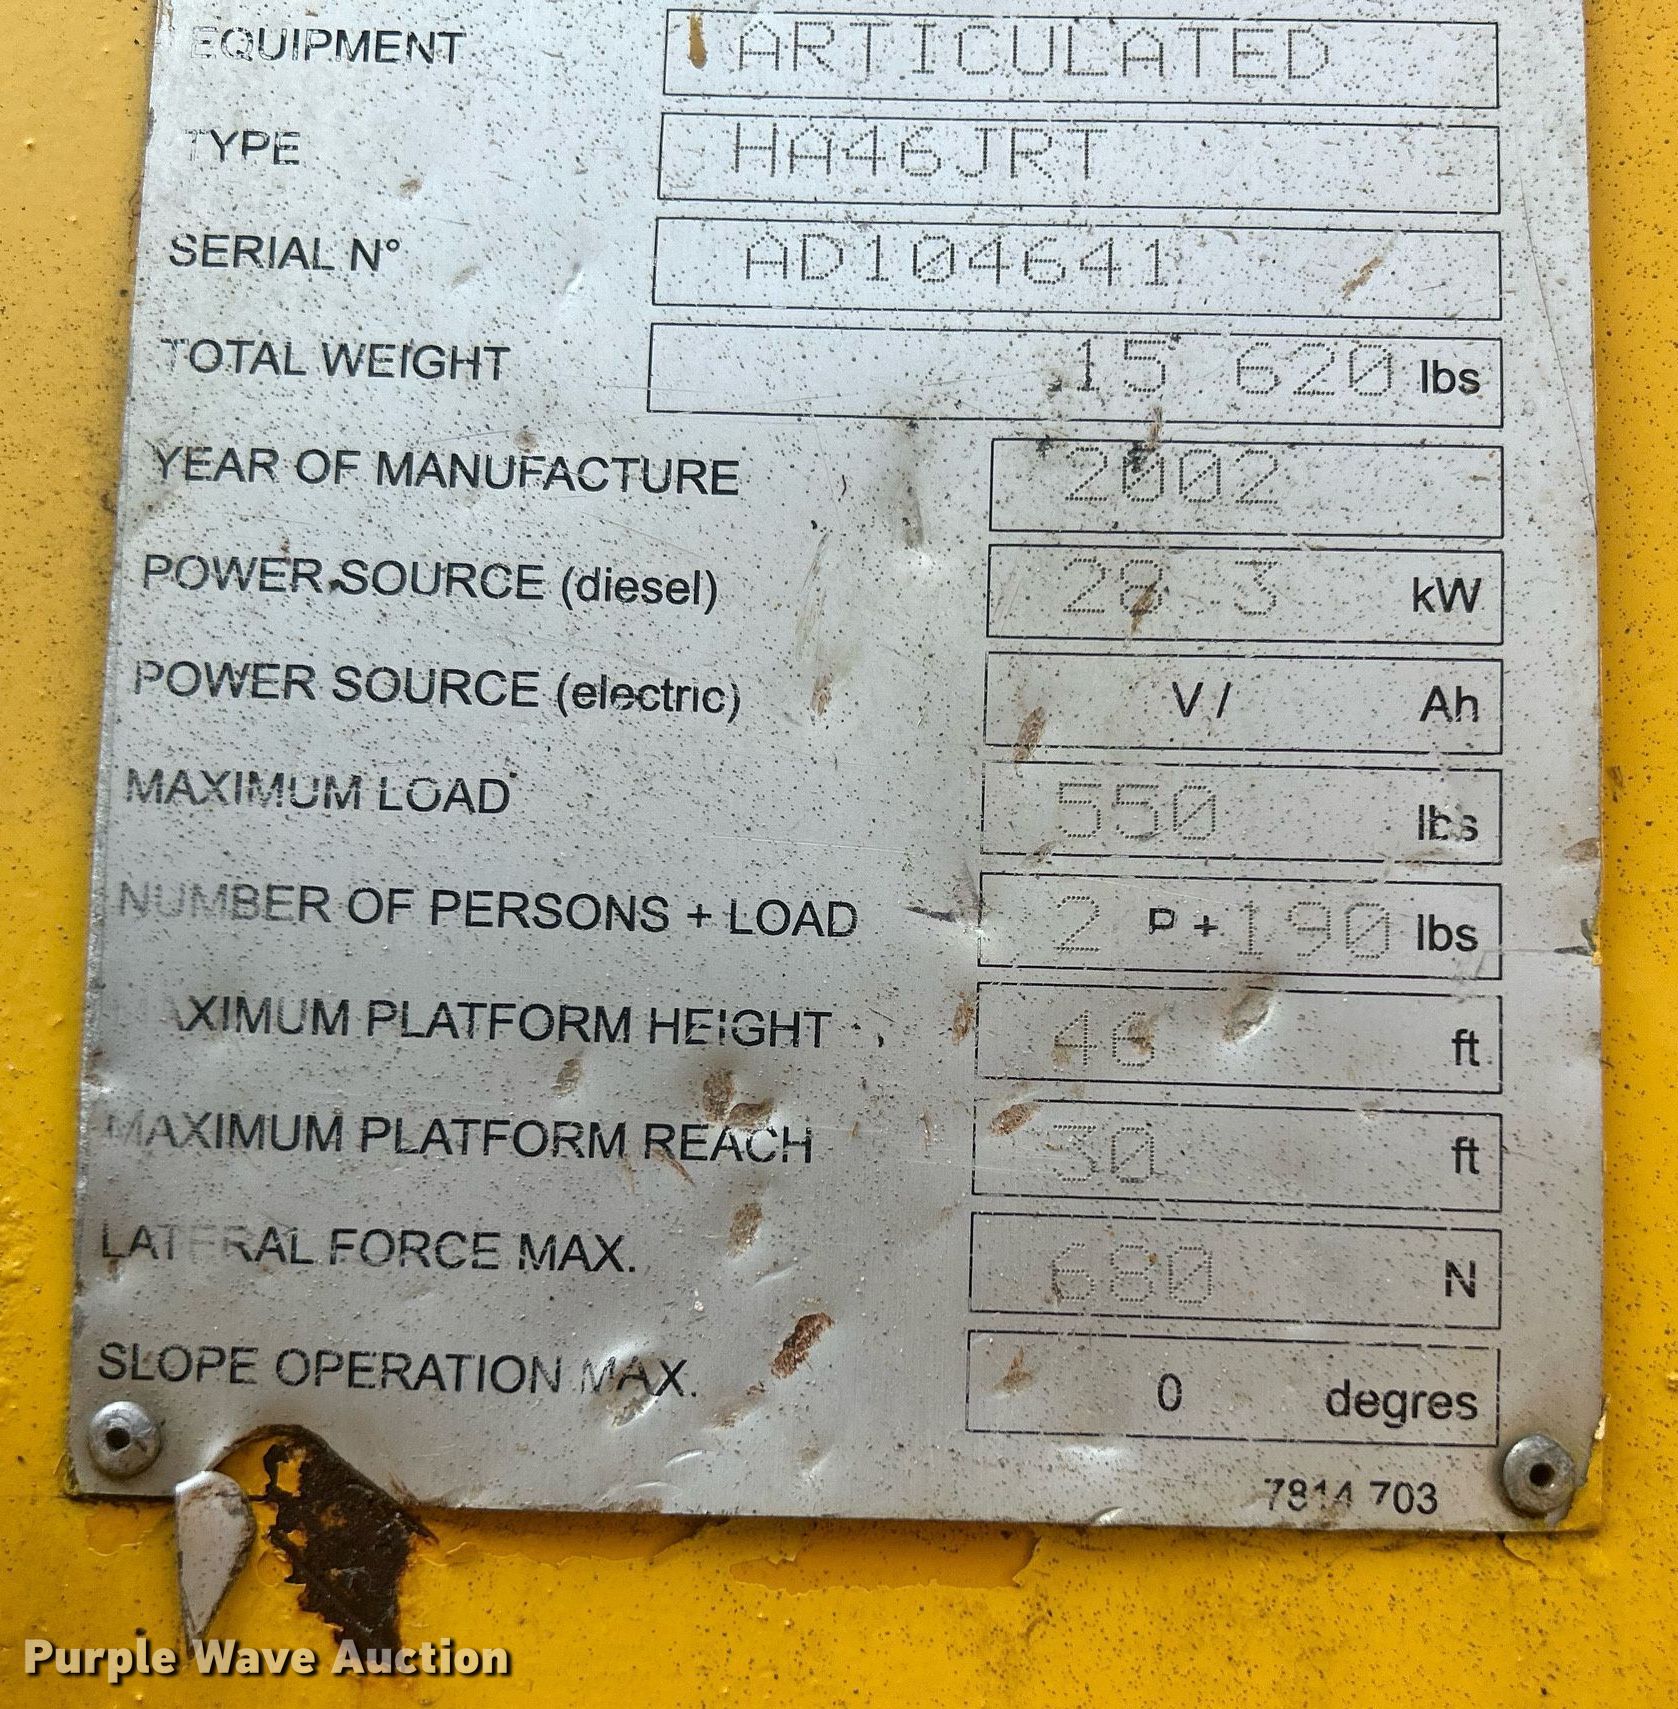 EQUIPMENT ARTICULATED
TYPE HA46JRT
SERIAL N° AD104641
TOTAL WEIGHT 15 620 lbs
YEAR OF MANUFACTURE 2002
POWER SOURCE (diesel) 28.3 kW
POWER SOURCE (electric) V / Ah
MAXIMUM LOAD 550 lbs
NUMBER OF PERSONS + LOAD 2 P + 190 lbs
MAXIMUM PLATFORM HEIGHT 46 ft
MAXIMUM PLATFORM REACH 30 ft
LATERAL FORCE MAX. 680 N
SLOPE OPERATION MAX. 0 degres
7814 703
Purple Wave Auction